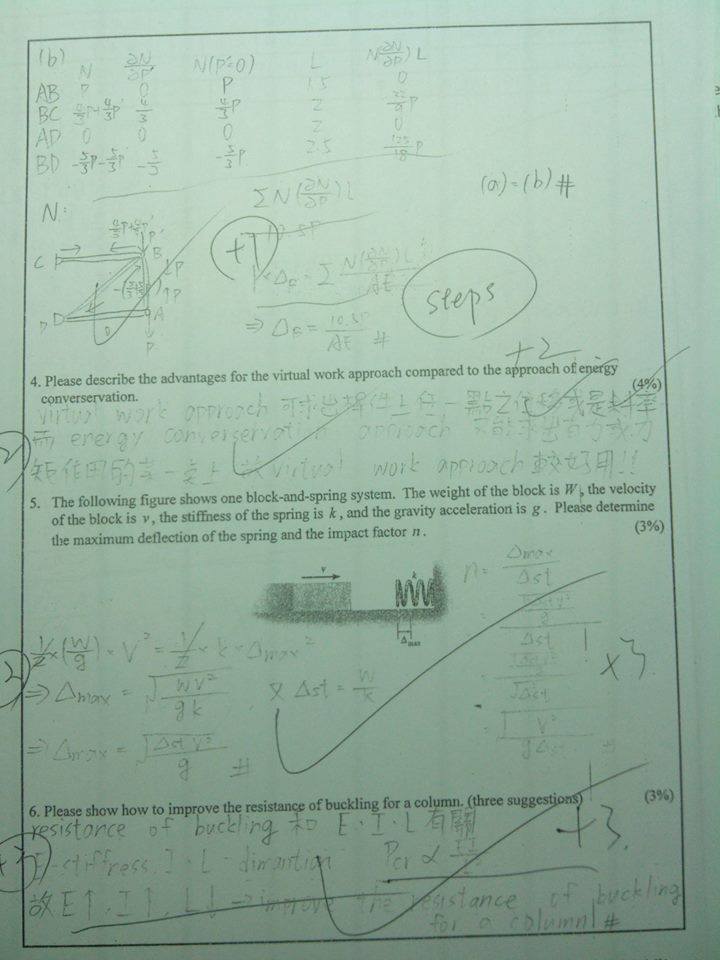 (b)
N ∂N/∂P' N(P'=0) L N(∂N/∂P')L
AB P 0 P 1.5 0
BC 4/3P+4/3P' 4/3 4/3P 2 32/9P
AD 0 0 0 2 0
BD -5/3P-5/3P' -5/3 -5/3P 2.5 125/18P
ΣN(∂N/∂P')L
(a)=(b)#
N:
C B
D A
+1
steps
⇒ΔB=10.5P/AE #
+2
4. Please describe the advantages for the virtual work approach compared to the approach of energy
converservation. (4%)
virtual work approach 可求出構件上任一點之位移或是斜率
而 energy converservation approach 只能求出有力或力
矩作用的 上 故 virtual work approach 較好用!!
5. The following figure shows one block-and-spring system. The weight of the block is W, the velocity
of the block is v, the stiffness of the spring is k, and the gravity acceleration is g. Please determine
the maximum deflection of the spring and the impact factor n. (3%)
v k
Δmax
n=Δmax/Δst
1/2×(W/g)×V²=1/2×k×Δmax²
⇒Δmax=√(WV²/gk) 又 Δst=W/k
=√(V²/gΔst)
⇒Δmax=√(ΔstV²/g) #
6. Please show how to improve the resistance of buckling for a column. (three suggestions) (3%)
resistance of buckling 和 E、I、L 有關
+3
Pcr ∝
故 E↑、I↑、L↓→improve the resistance of buckling
for a column #